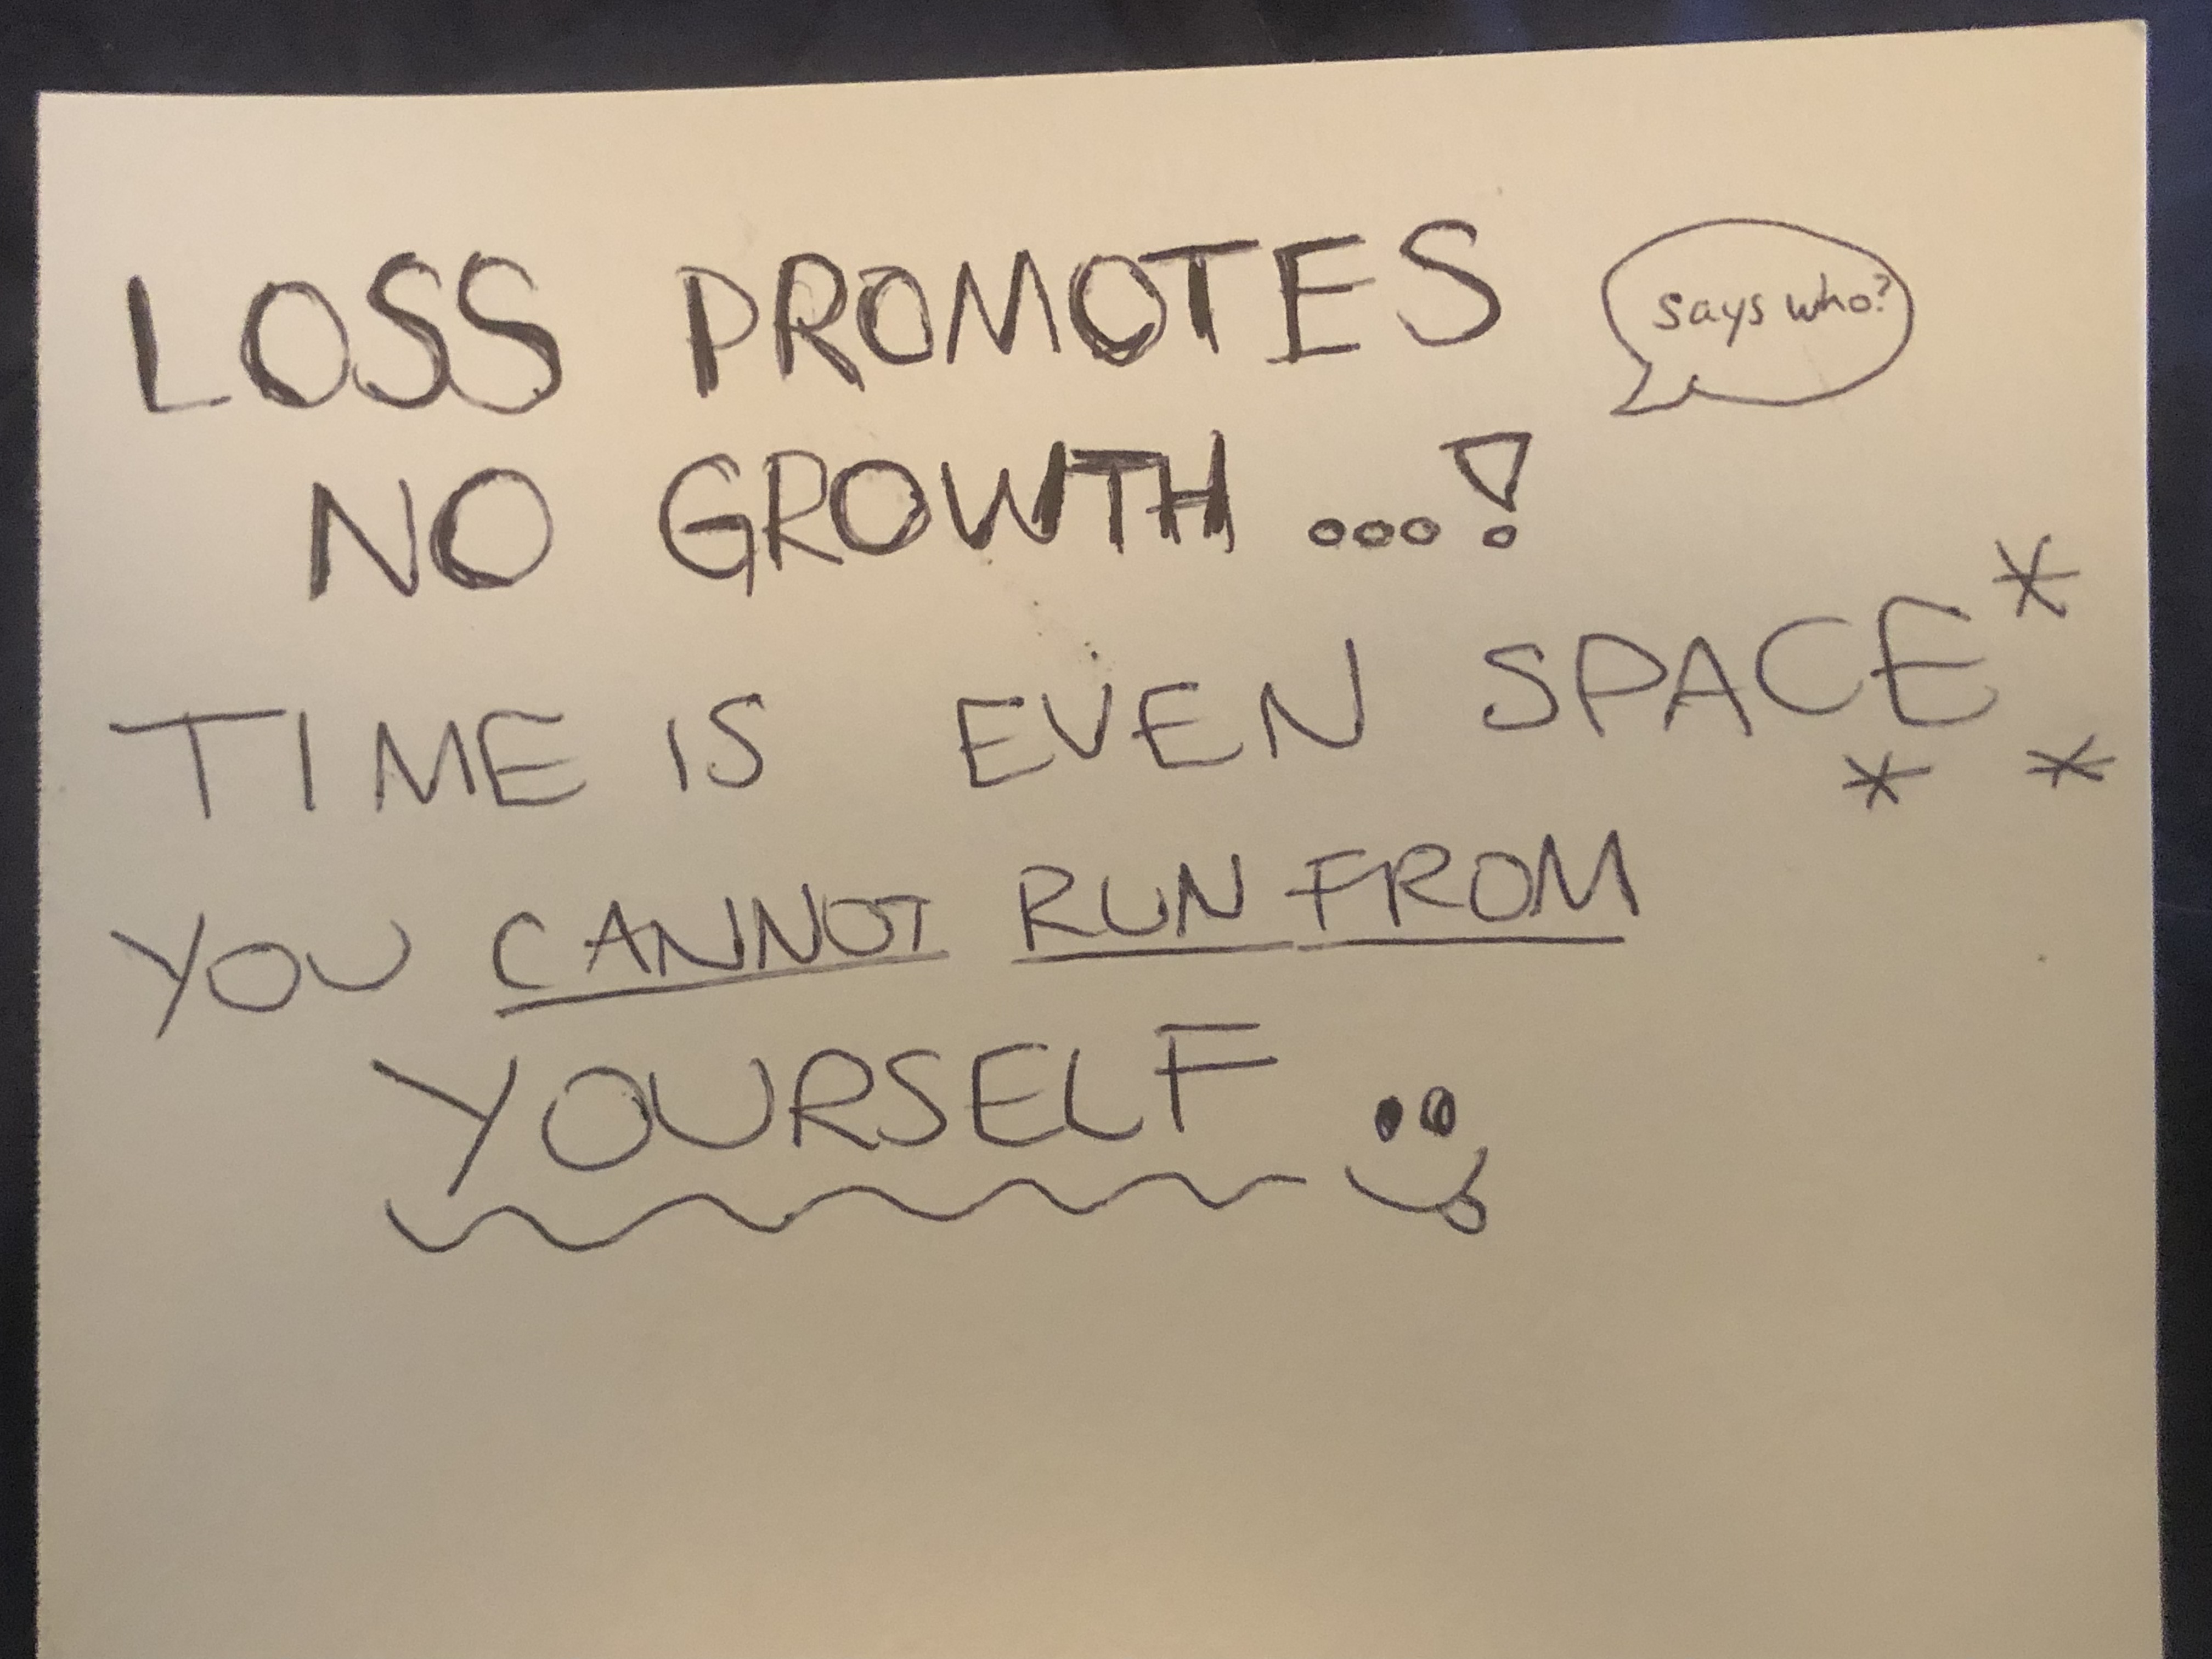 LOSS PROMOTES
says who?
NO GROWTH ...!
TIME IS EVEN SPACE*
* *
YOU CANNOT RUN FROM
YOURSELF